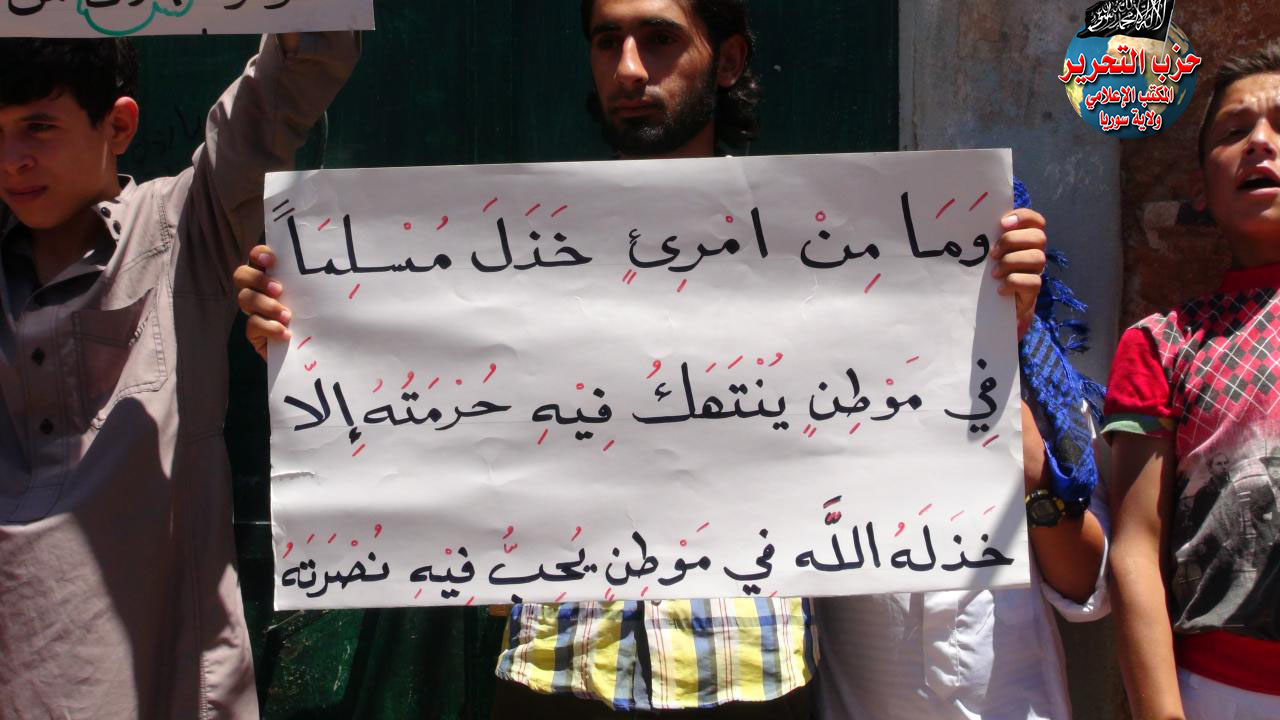 حزب التحرير
المكتب الإعلامي
ولاية سوريا
وَمَا مِنْ امْرِئٍ خَذَلَ مُسْلِمَاً
فِي مَوْطِنٍ يُنْتَهَكُ فِيْهِ حُرْمَتُهُ إِلّا
خَذَلَهُ اللَّه فِي مَوْطِنٍ يُحِبُّ فِيْهِ نُصْرَتَهُ